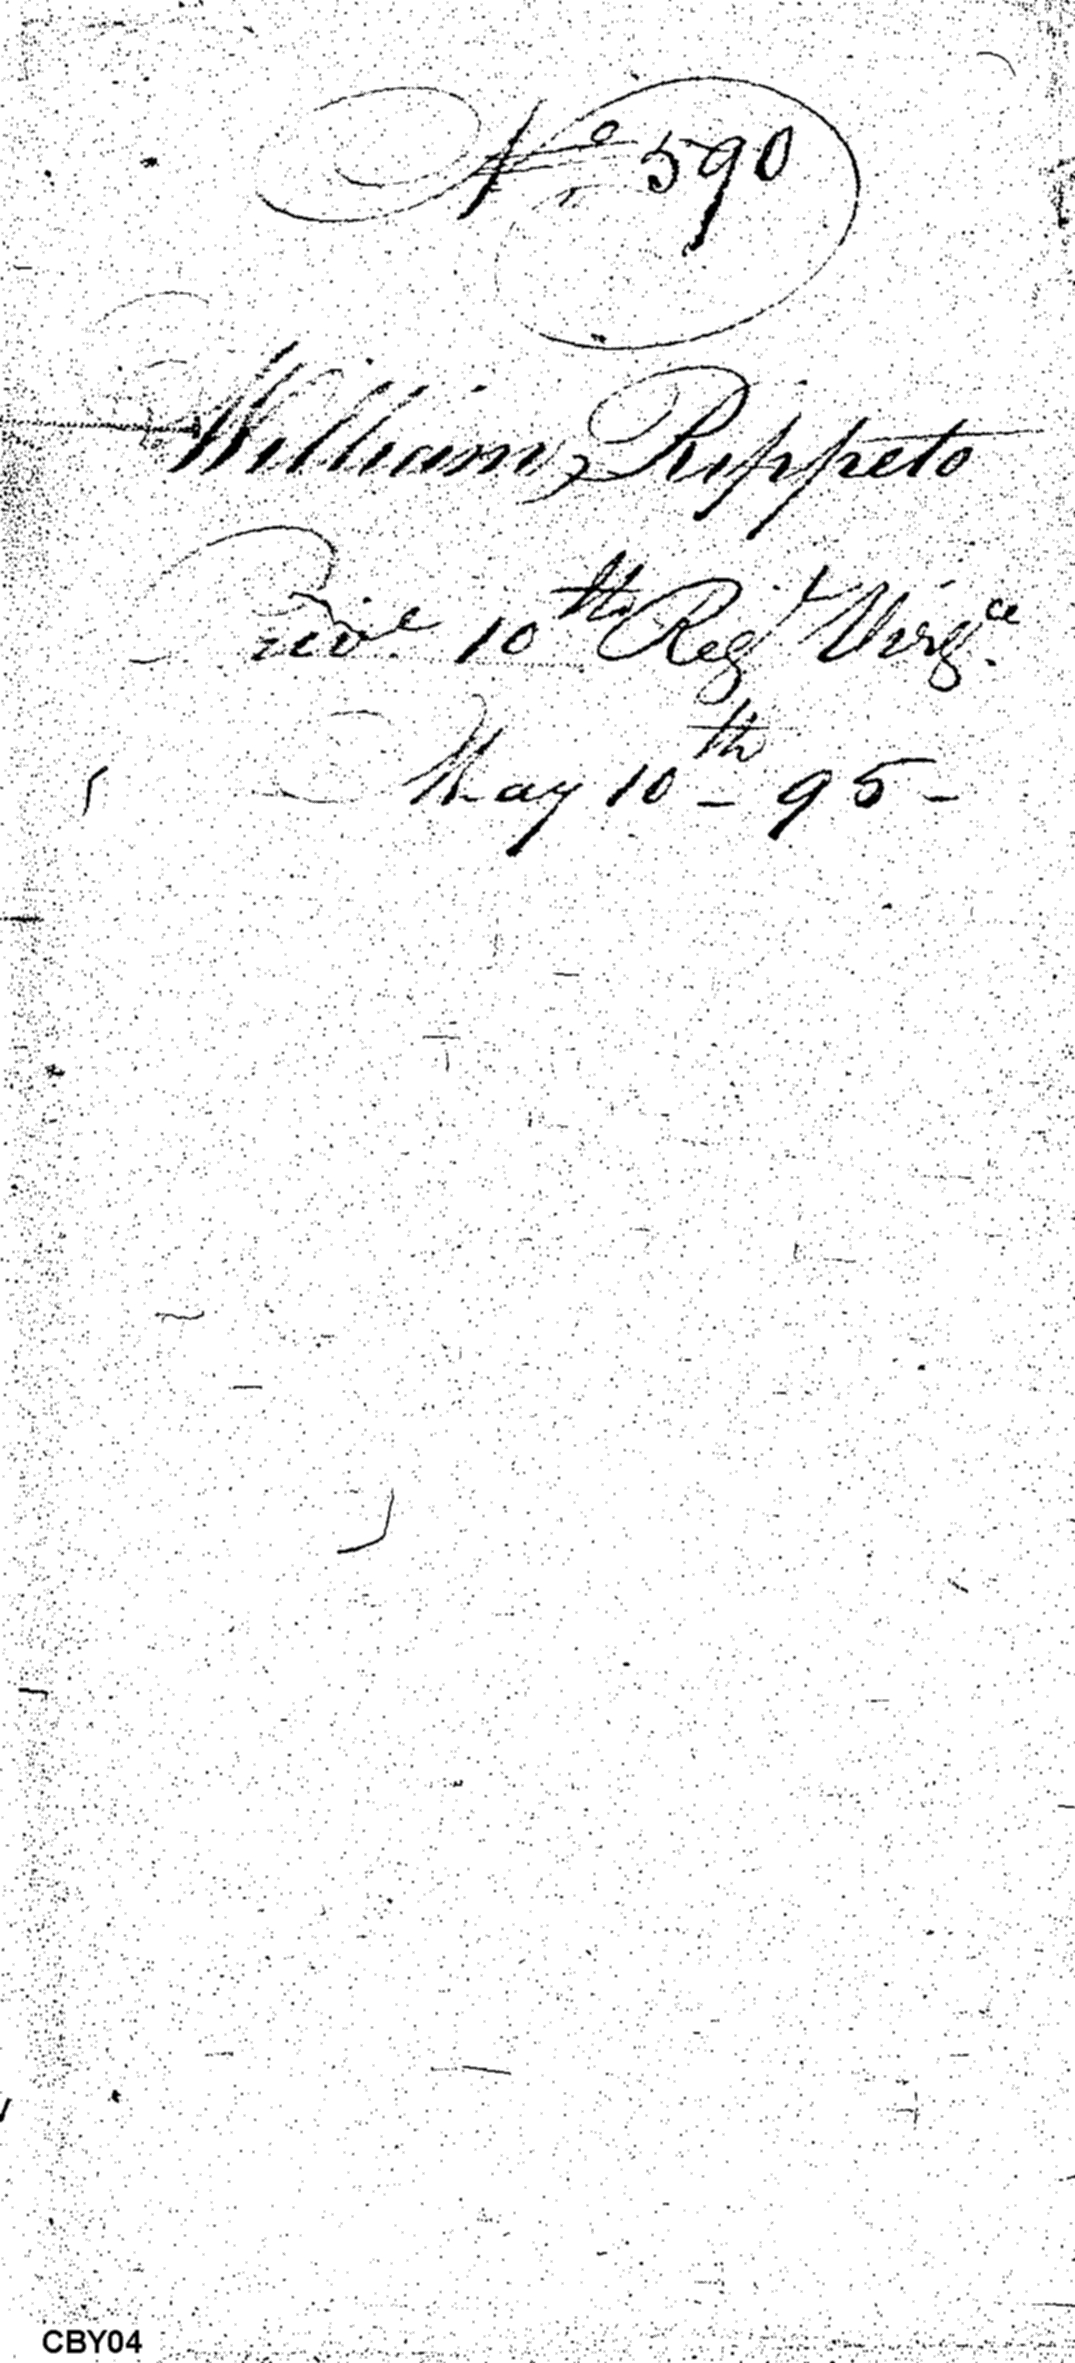 No 590
William Rippeto
Priv.e 10th Regt Virg.ce
May 10th - 95 -
CBY04